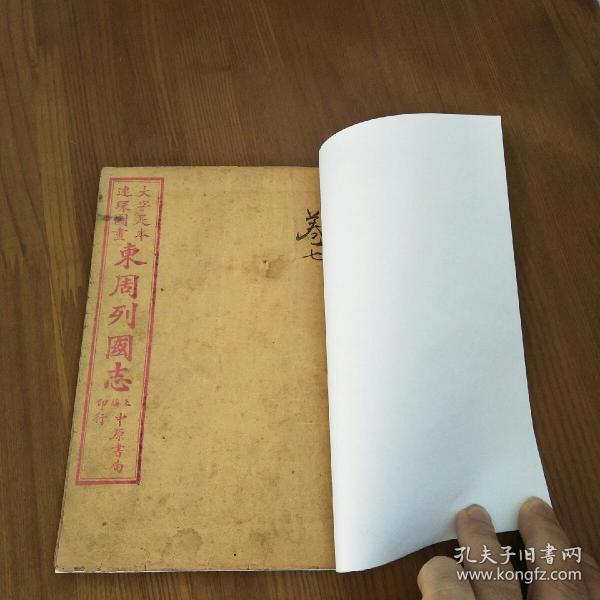 大字足本
連環圖畫
東周列國志
上海中原書局
印行
卷
七
孔夫子旧書网
www.kongfz.com